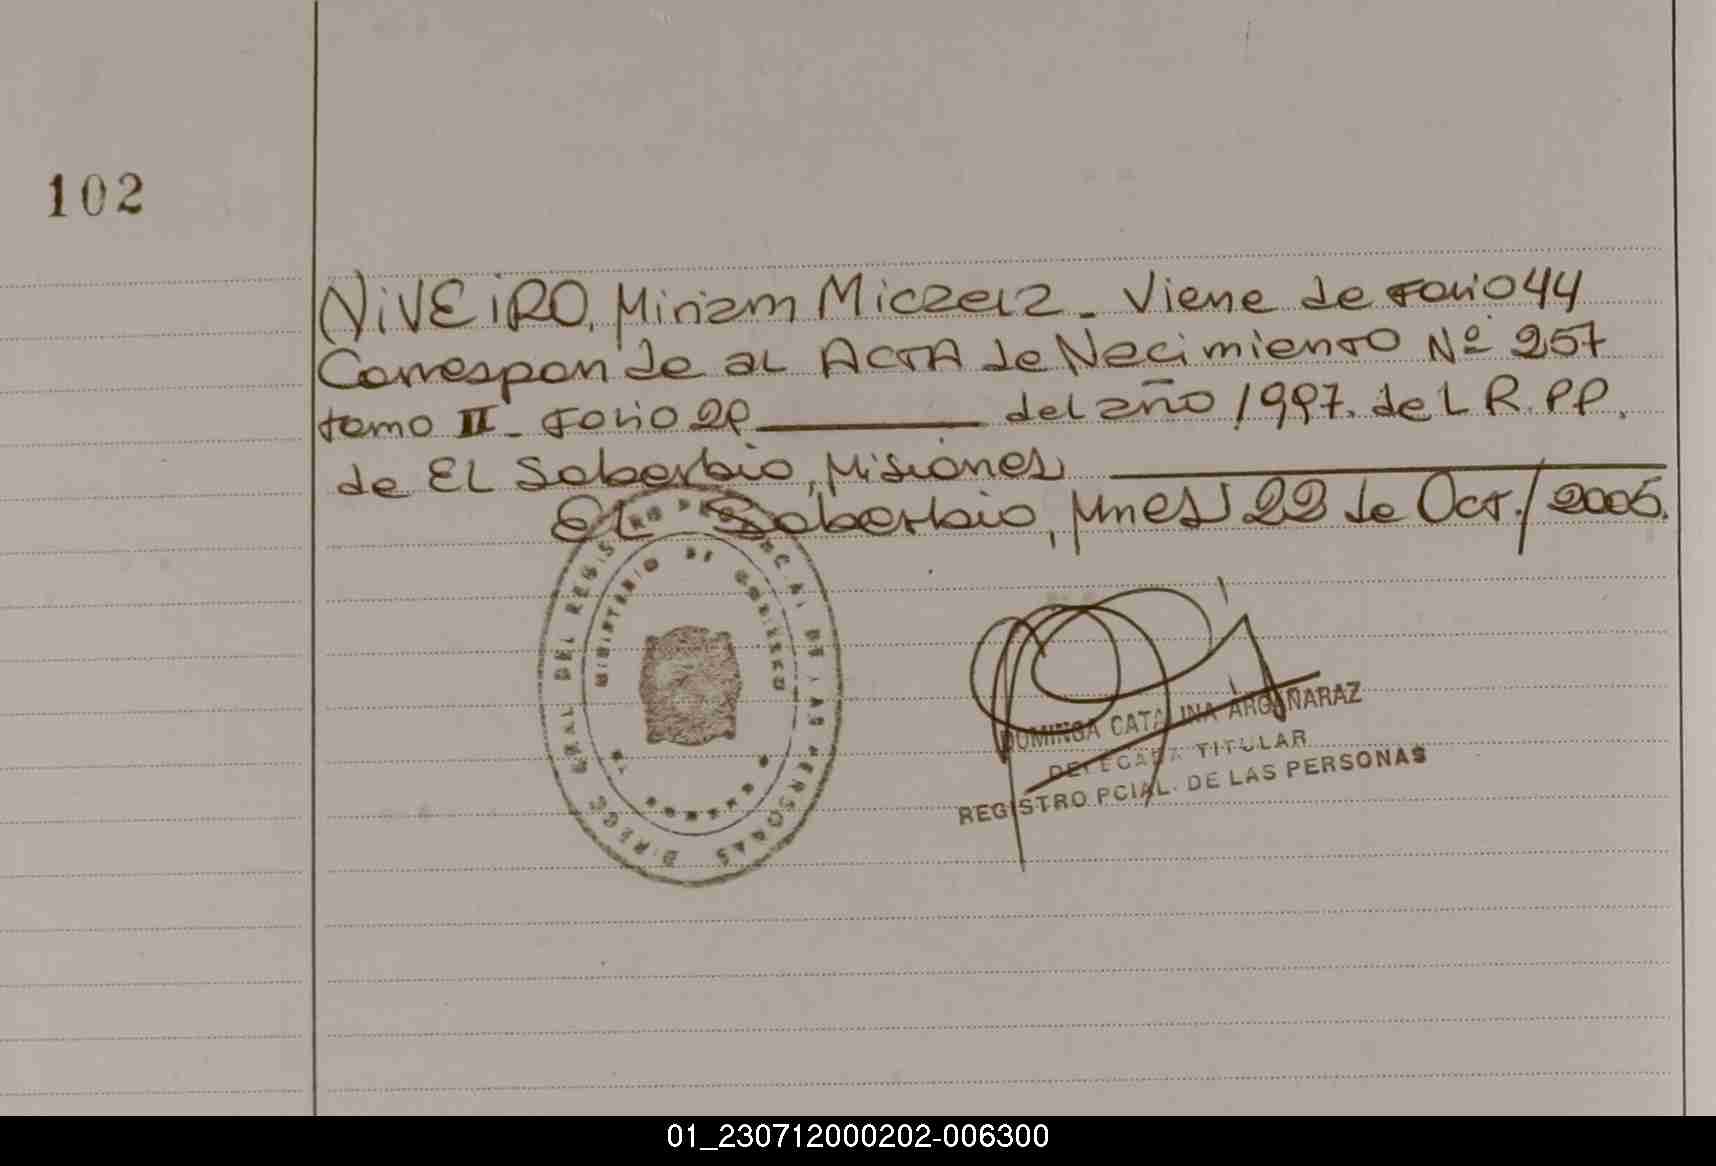 102
NiVEiRO, Miriam Micaela - Viene de Folio 44
Corresponde al ACTA de Nacimiento Nº 257
tomo II - Folio 29 del año 1997. de L R.PP.
de EL Soberbio, Misiones
EL Soberbio, Mnes 22 de Oct./2005.
DIREC. GRAL DEL REGISTRO PROVINCIAL DE LAS PERSONAS
MINISTERIO DE GOBIERNO
DOMINGA CATALINA ARGAÑARAZ
DELEGADA TITULAR
REGISTRO PCIAL. DE LAS PERSONAS
01_230712000202-006300